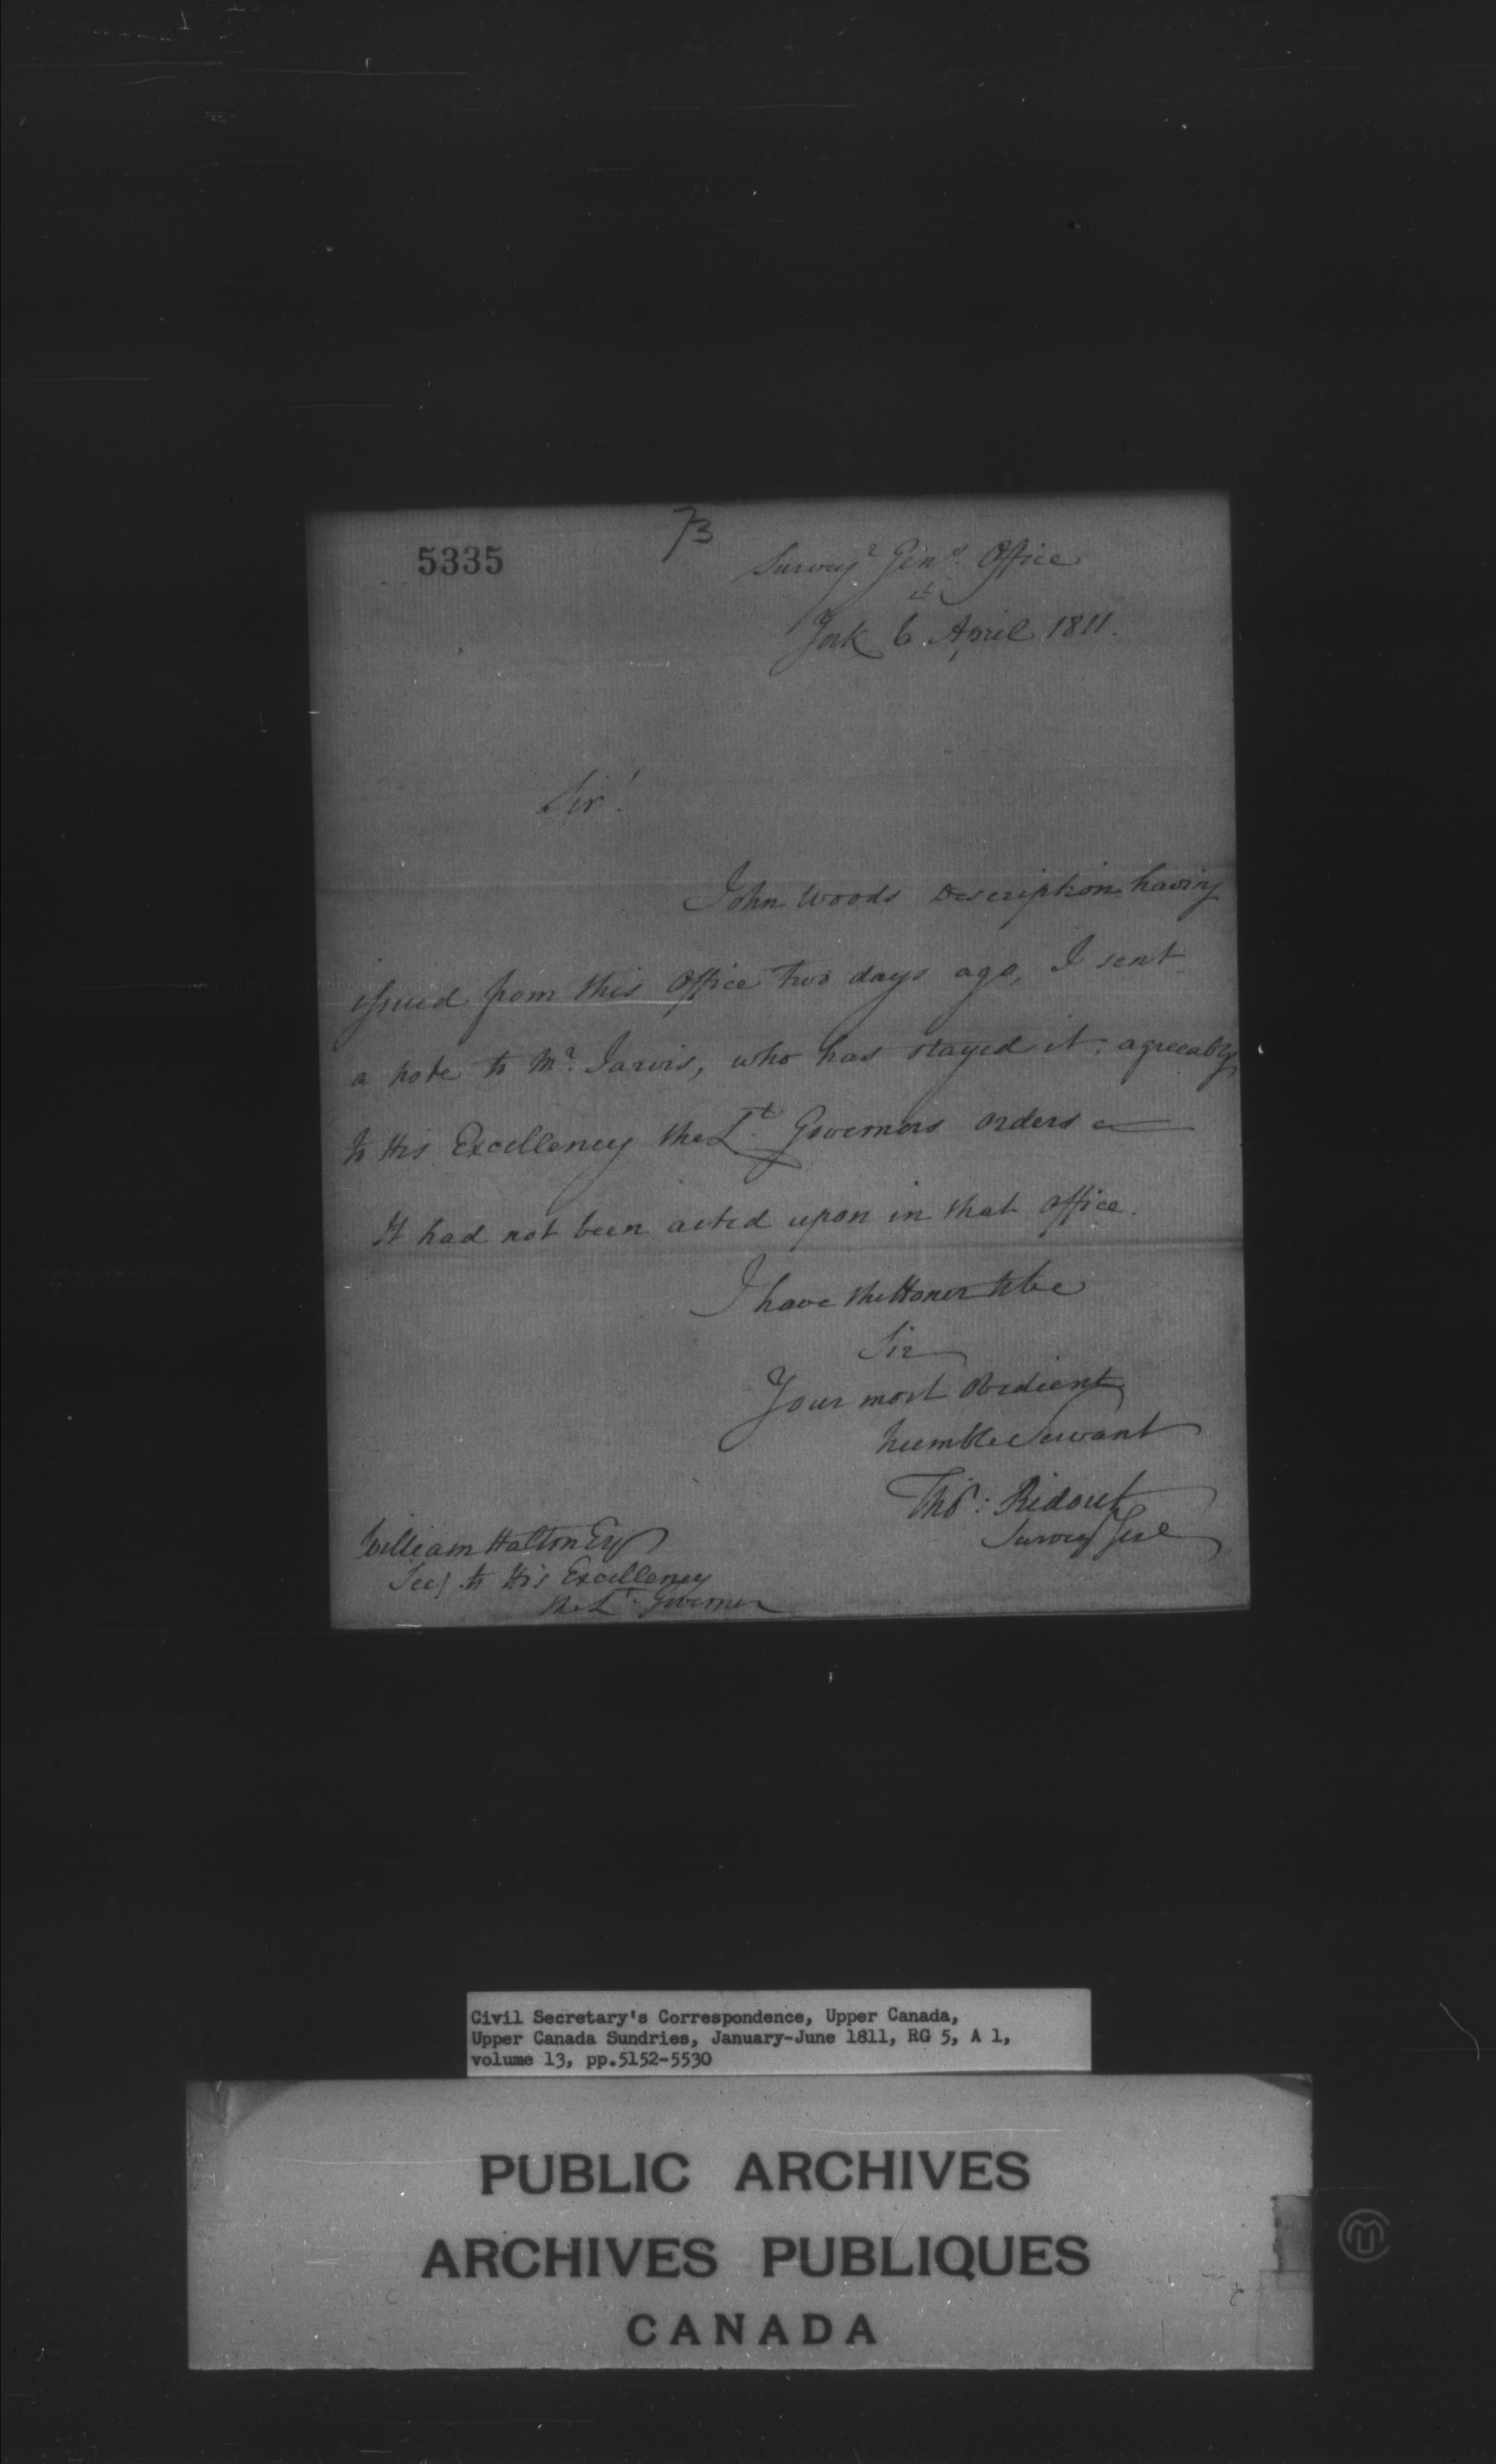 5335
73
Survey.r Gen.ls Office
York 6.th April 1811.
Sir!
John Woods Description having
issued from this Office two days ago, I sent
a note to Mr. Jarvis, who has stayed it, agreeably
to His Excellency the Lt. Governors orders
It had not been acted upon in that Office.
I have the Honor to be
Sir
Your most Obedient
humble Servant
Thos: Ridout
Survey Genl
William Halton Esq
Secy to His Excellency
the Lt. Governor
Civil Secretary's Correspondence, Upper Canada,
Upper Canada Sundries, January-June 1811, RG 5, A 1,
volume 13, pp.5152-5530
PUBLIC ARCHIVES
ARCHIVES PUBLIQUES
CANADA